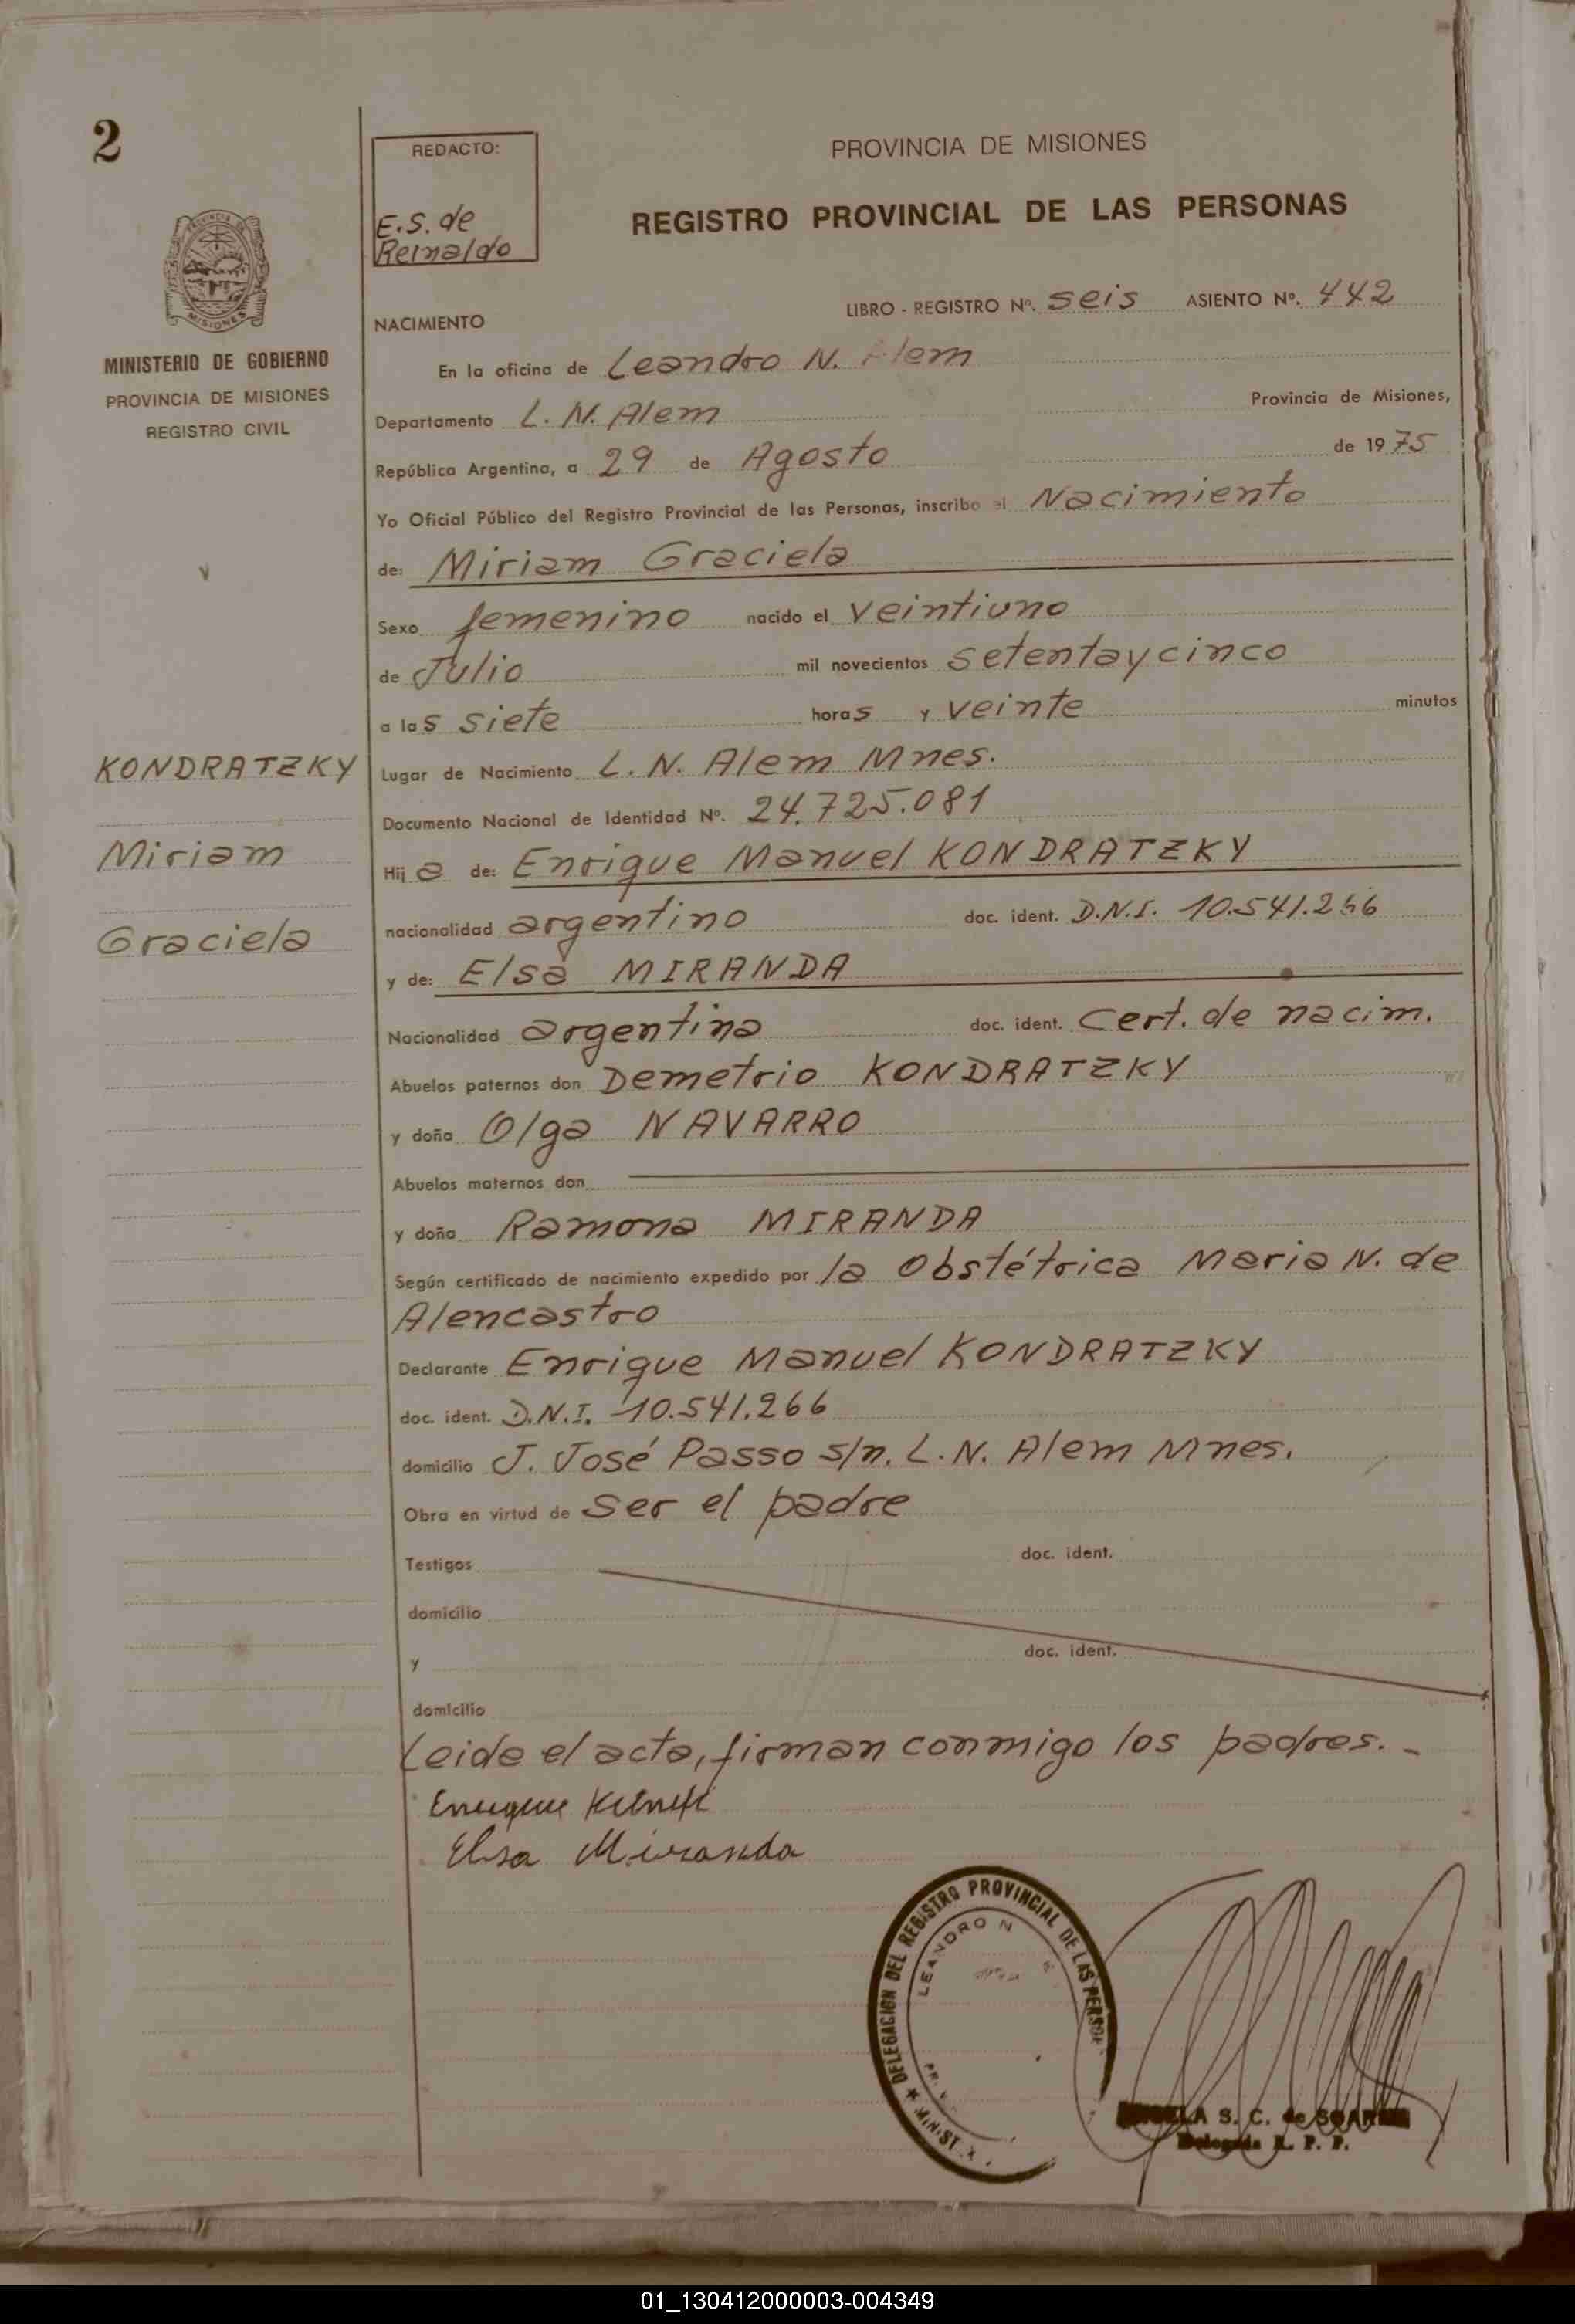 2
REDACTO:
E.S. de
Reinaldo
PROVINCIA DE MISIONES
REGISTRO PROVINCIAL DE LAS PERSONAS
PROVINCIA
MISIONES
MINISTERIO DE GOBIERNO
PROVINCIA DE MISIONES
REGISTRO CIVIL
NACIMIENTO
LIBRO - REGISTRO Nº. seis ASIENTO Nº. 442
En la oficina de Leandro N. Alem
Departamento L. N. Alem Provincia de Misiones,
República Argentina, a 29 de Agosto de 1975
Yo Oficial Público del Registro Provincial de las Personas, inscribo el Nacimiento
de: Miriam Graciela
Sexo femenino nacido el veintiuno
de Julio mil novecientos setentaycinco
a las siete horas y veinte minutos
KONDRATZKY
Miriam
Graciela
Lugar de Nacimiento L. N. Alem Mnes.
Documento Nacional de Identidad Nº. 24.725.081
Hija de: Enrique Manuel KONDRATZKY
nacionalidad argentino doc. ident. D.N.I. 10.541.266
y de: Elsa MIRANDA
Nacionalidad argentina doc. ident. Cert. de nacim.
Abuelos paternos don Demetrio KONDRATZKY
y doña Olga NAVARRO
Abuelos maternos don
y doña Ramona MIRANDA
Según certificado de nacimiento expedido por la Obstétrica Maria N. de
Alencastro
Declarante Enrique Manuel KONDRATZKY
doc. ident. D.N.I. 10.541.266
domicilio J. José Passo s/n. L.N. Alem Mnes.
Obra en virtud de ser el padre
Testigos doc. ident.
domicilio
y doc. ident.
domicilio
Leida el acta, firman conmigo los padres.-
Enrique
Elsa Miranda
DELEGACION DEL REGISTRO PROVINCIAL DE LAS
LEANDRO N
S. C. de
Delegada R. P. P.
01_130412000003-004349